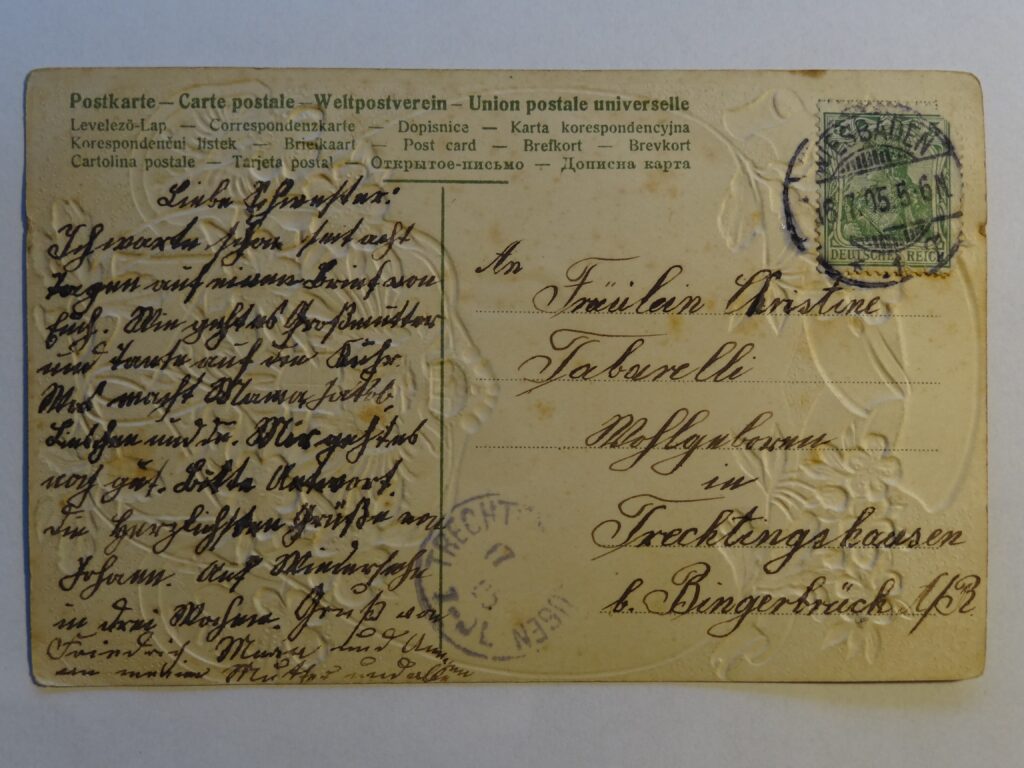 Postkarte — Carte postale — Weltpostverein — Union postale universelle
Levelező-Lap — Correspondenzkarte — Dopisnice — Karta korespondencyjna
Korespondenční lístek — Briefkaart — Post card — Brefkort — Brevkort
Cartolina postale — Tarjeta postal — Открытое-письмо — Дописна карта
Liebe Schwester:
Ich warte schon seit acht
Tagen auf einen Brief von
Euch. Wie geht es Großmutter
und Tante auf die Kuhr.
Was macht Mama Jakob,
Lieschen und du. Mir geht es
noch gut. Bitte Antwort.
Die Herzlichsten Grüße von
Johann. Auf Wiedersehn
in drei Wochen. Gruß von
Friedrich Mann und
an meine Mutter und alle
WIESBADEN
16.7.05.5-6N
DEUTSCHES REICH
An
Fräulein Christine
Tabarelli
Wohlgeboren
in
Trechtingshausen
b. Bingerbrück a/R
TRECHT
17
USEN